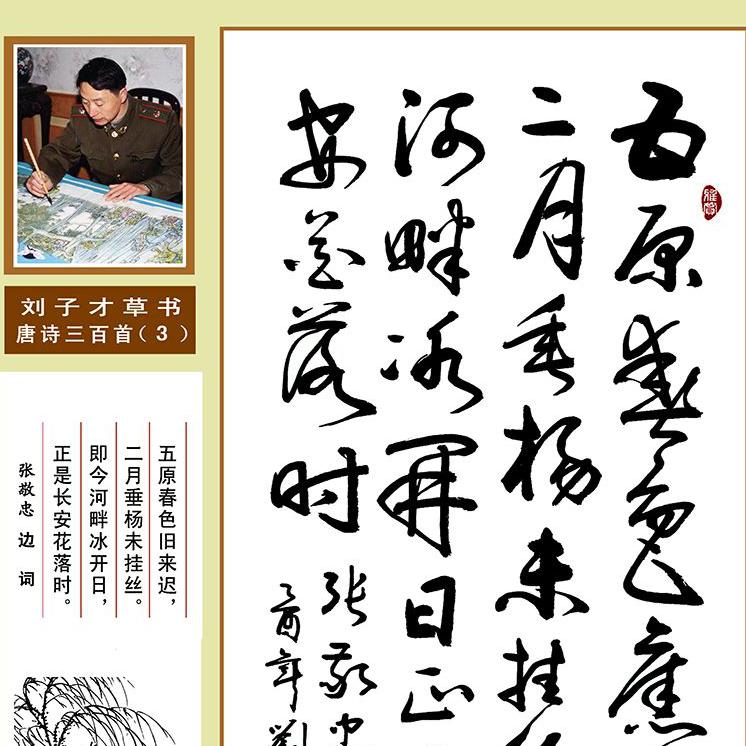 刘子才草书
唐诗三百首（3）
五原春色旧来迟，
二月垂杨未挂丝。
即今河畔冰开日，
正是长安花落时。
张敬忠 边词
五原春色旧
二月垂杨未挂
河畔冰开日正
安花落时
张敬忠
乙酉年刘